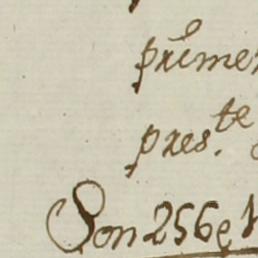 primer
pres.te
Son 256e